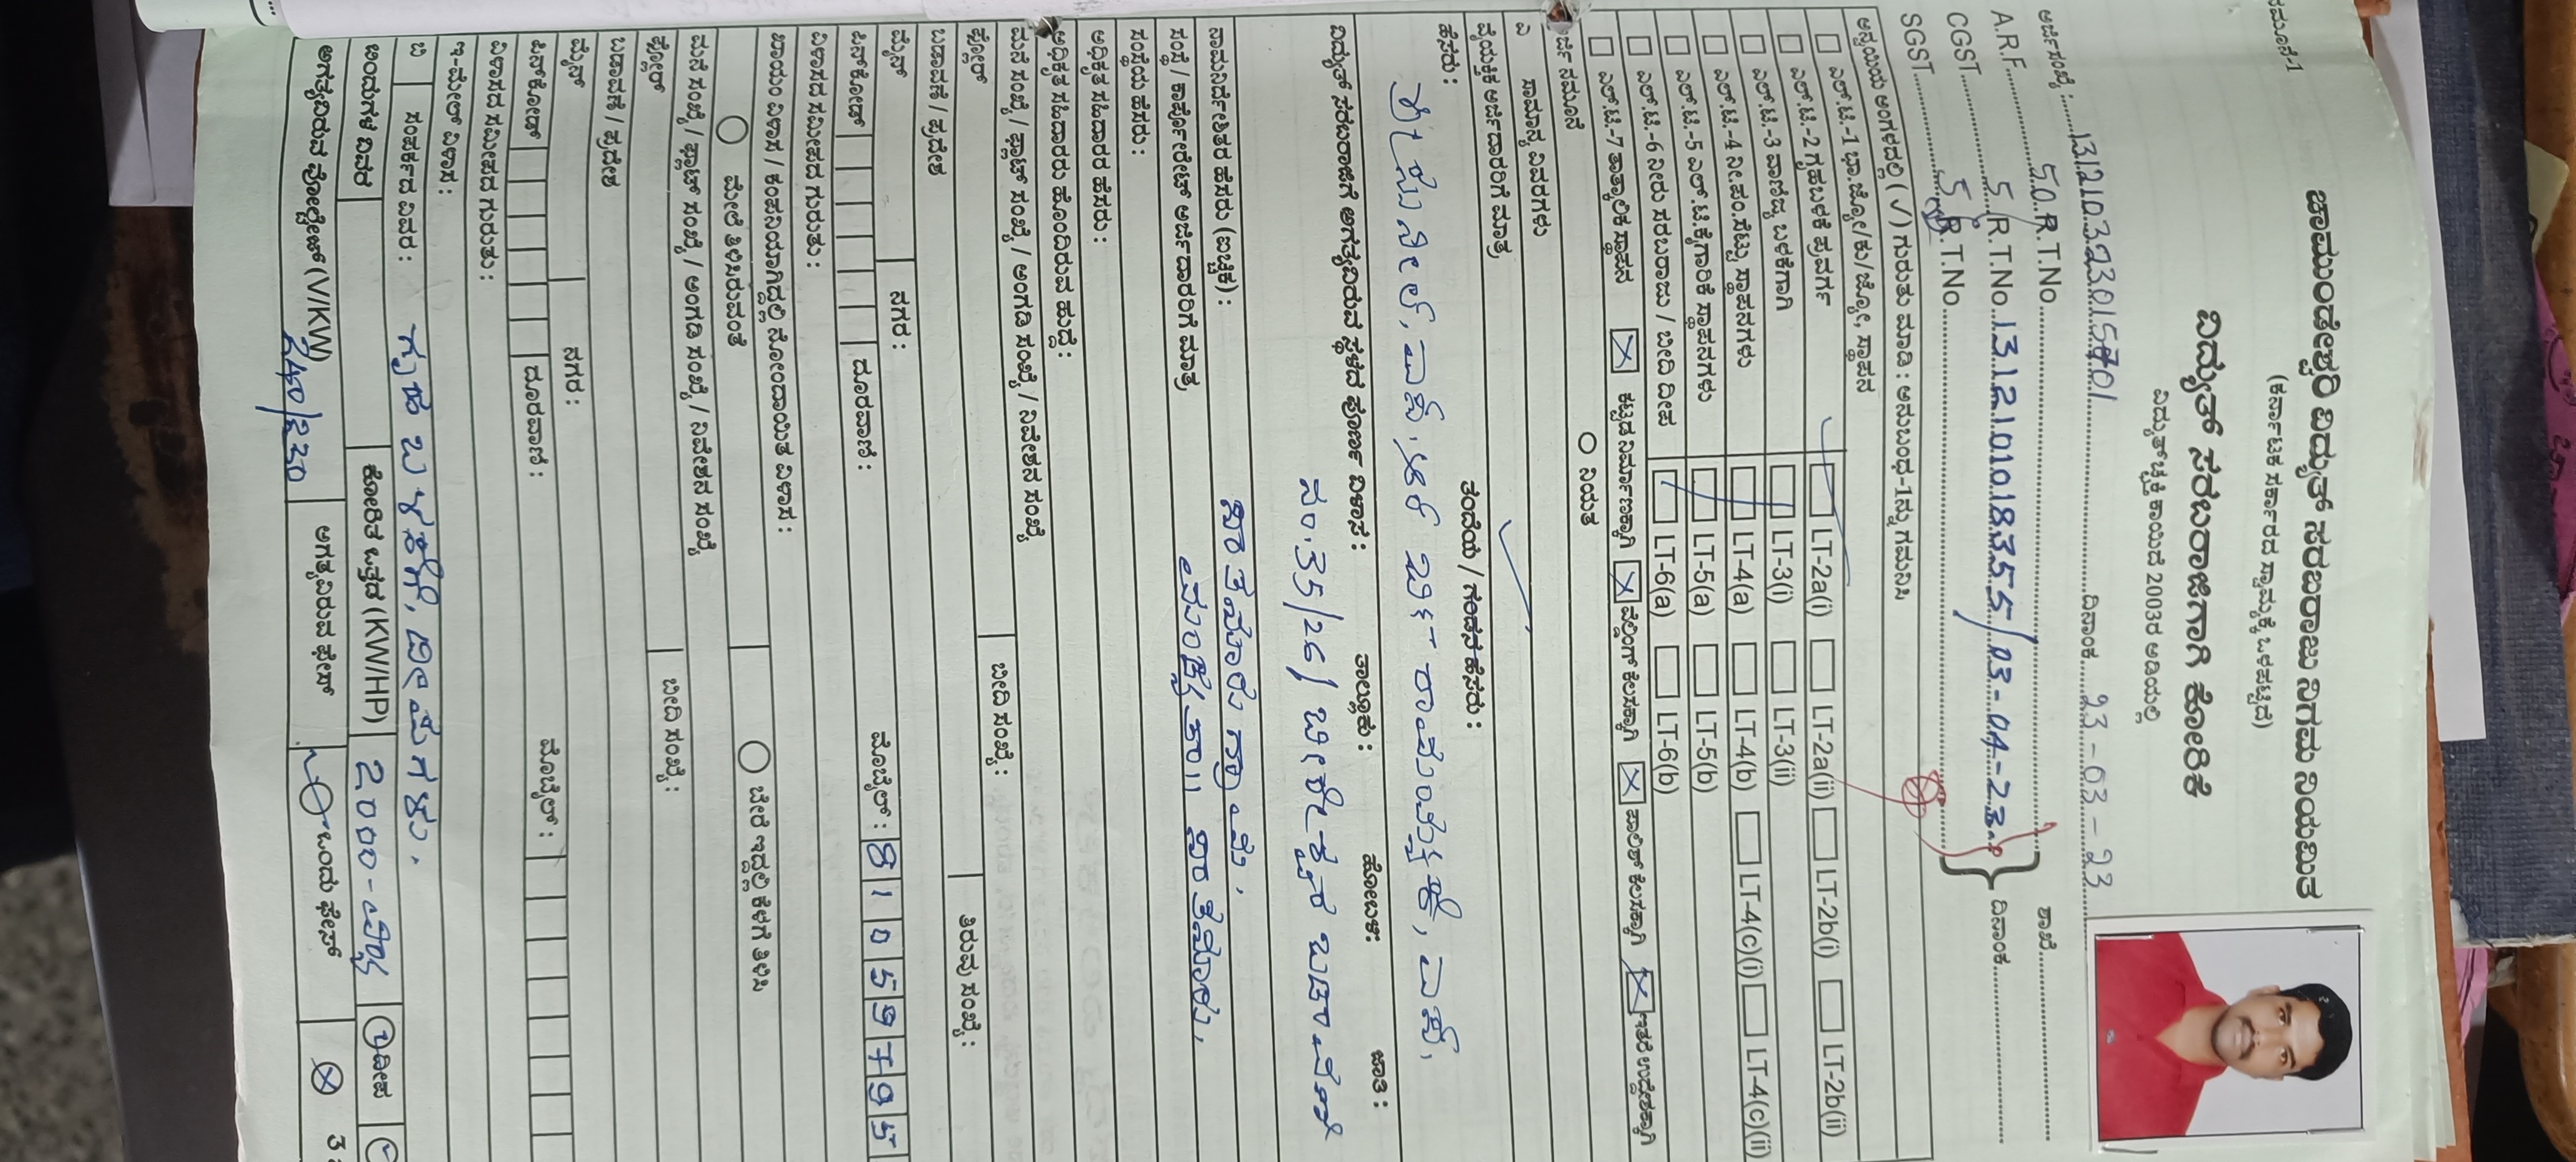 ನಮೂನೆ-1
ಚಾಮುಂಡೇಶ್ವರಿ ವಿದ್ಯುತ್ ಸರಬರಾಜು ನಿಗಮ ನಿಯಮಿತ
(ಕರ್ನಾಟಕ ಸರ್ಕಾರದ ಸ್ವಾಮ್ಯಕ್ಕೆ ಒಳಪಟ್ಟಿದೆ)
ವಿದ್ಯುತ್ ಸರಬರಾಜಿಗಾಗಿ ಕೋರಿಕೆ
ವಿದ್ಯುತ್‌ಚ್ಛಕ್ತಿ ಕಾಯಿದೆ 2003ರ ಅಡಿಯಲ್ಲಿ
ಅರ್ಜಿ ಸಂಖ್ಯೆ : ದಿನಾಂಕ 23-03-23
A.R.F. 50 R.T.No. ಶಾಖೆ
CGST 5 R.T.No. 1312101018355/03-04-23 ದಿನಾಂಕ
SGST 5 R.T.No.
ಅನ್ವಯಿಯ ಅಂಗಳದಲ್ಲಿ (✓) ಗುರುತು ಮಾಡಿ : ಅನುಬಂಧ-1ನ್ನು ಗಮನಿಸಿ
ಎಲ್.ಟಿ.-1 ಭಾ.ಜ್ಯೋ/ಕು/ಜ್ಯೋ, ಸ್ಥಾಪನ
ಎಲ್.ಟಿ.-2 ಗೃಹಬಳಕೆ ಪ್ರವರ್ಗ LT-2a(i) LT-2a(ii) LT-2b(i) LT-2b(ii)
ಎಲ್.ಟಿ.-3 ವಾಣಿಜ್ಯ ಬಳಕೆಗಾಗಿ LT-3(i) LT-3(ii)
ಎಲ್.ಟಿ.-4 ನೀ.ಪಂ.ಸೆಟ್ಟು ಸ್ಥಾಪನಗಳು LT-4(a) LT-4(b) LT-4(c)(i) LT-4(c)(ii)
ಎಲ್.ಟಿ.-5 ಎಲ್.ಟಿ.ಕೈಗಾರಿಕೆ ಸ್ಥಾಪನಗಳು LT-5(a) LT-5(b)
ಎಲ್.ಟಿ.-6 ನೀರು ಸರಬರಾಜು / ಬೀದಿ ದೀಪ LT-6(a) LT-6(b)
ಎಲ್.ಟಿ.-7 ತಾತ್ಕಾಲಿಕ ಸ್ಥಾಪನ ಕಟ್ಟಡ ನಿರ್ಮಾಣಕ್ಕಾಗಿ ವೆಲ್ಡಿಂಗ್ ಕೆಲಸಕ್ಕಾಗಿ ಪಾಲಿಶ್ ಕೆಲಸಕ್ಕಾಗಿ ಇತರೆ ಉದ್ದೇಶಕ್ಕಾಗಿ
ರ್ಜಿ ನಮೂನೆ ನಿಯತ
ಎ ಸಾಮಾನ್ಯ ವಿವರಗಳು
ವೈಯಕ್ತಿಕ ಅರ್ಜಿದಾರರಿಗೆ ಮಾತ್ರ
ಹೆಸರು : ತಂದೆಯ / ಗಂಡನ ಹೆಸರು :
ವಿದ್ಯುತ್ ಸರಬರಾಜಿಗೆ ಅಗತ್ಯವಿರುವ ಸ್ಥಳದ ಪೂರ್ಣ ವಿಳಾಸ : ತಾಲ್ಲೂಕು : ಹೋಬಳಿ: ಜಾತಿ :
ನಂ.35/26/ ಬೀರೇಶ್ವರ ಬಡಾವಣೆ
ನಾಮನಿರ್ದೇಶಿತರ ಹೆಸರು (ಐಚ್ಛಿಕ) : ಭಾರತಿನಗರ ಗ್ರಾಮ.
ಸಂಸ್ಥೆ / ಕಾರ್ಪೋರೇಟ್ ಅರ್ಜಿದಾರರಿಗೆ ಮಾತ್ರ
ಸಂಸ್ಥೆಯ ಹೆಸರು :
ಅಧಿಕೃತ ಸಹಿದಾರರ ಹೆಸರು :
ಅಧಿಕೃತ ಸಹಿದಾರರು ಹೊಂದಿರುವ ಹುದ್ದೆ :
ಮನೆ ಸಂಖ್ಯೆ / ಫ್ಲಾಟ್ ಸಂಖ್ಯೆ / ಅಂಗಡಿ ಸಂಖ್ಯೆ / ನಿವೇಶನ ಸಂಖ್ಯೆ
ಫ್ಲೋರ್ ಬೀದಿ ಸಂಖ್ಯೆ : ತಿರುವು ಸಂಖ್ಯೆ :
ಬಡಾವಣೆ / ಪ್ರದೇಶ
ಮೈನ್ ನಗರ :
ಪಿನ್‌ಕೋಡ್ ದೂರವಾಣಿ : ಮೊಬೈಲ್ : 8105979795
ವಿಳಾಸದ ಸಮೀಪದ ಗುರುತು :
ಖಾಯಂ ವಿಳಾಸ / ಕಂಪನಿಯಾಗಿದ್ದಲ್ಲಿ ನೋಂದಾಯಿತ ವಿಳಾಸ :
ಮೇಲೆ ತಿಳಿಸಿರುವಂತೆ ಬೇರೆ ಇದ್ದಲ್ಲಿ ಕೆಳಗೆ ತಿಳಿಸಿ
ಮನೆ ಸಂಖ್ಯೆ / ಫ್ಲಾಟ್ ಸಂಖ್ಯೆ / ಅಂಗಡಿ ಸಂಖ್ಯೆ / ನಿವೇಶನ ಸಂಖ್ಯೆ
ಫ್ಲೋರ್ ಬೀದಿ ಸಂಖ್ಯೆ :
ಬಡಾವಣೆ / ಪ್ರದೇಶ
ಮೈನ್ ನಗರ :
ಪಿನ್‌ಕೋಡ್ ದೂರವಾಣಿ : ಮೊಬೈಲ್ :
ವಿಳಾಸದ ಸಮೀಪದ ಗುರುತು :
ಇ-ಮೇಲ್ ವಿಳಾಸ :
ಬಿ ಸಂಪರ್ಕದ ವಿವರ : ಗೃಹ ಬಳಕೆಗೆ, ದೀಪಗಳು.
ಬಿಂದುಗಳ ವಿವರ ಕೋರಿತ ಒತ್ತಡ (KW/HP) 2000-ವ್ಯಾ ದೀಪ
ಅಗತ್ಯವಿರುವ ವೋಲ್ಟೇಜ್ (V/KW) 240/230 ಅಗತ್ಯವಿರುವ ಫೇಸ್ ಒಂದು ಫೇಸ್ 3